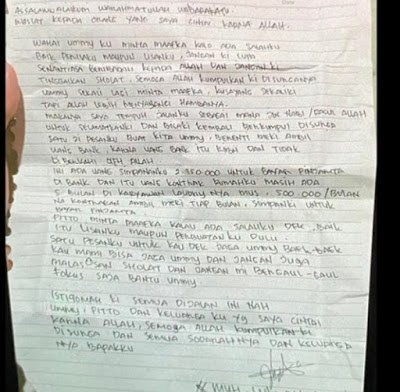 ASSALAMUALAIKUM WARAHMATULLAH WABARAKATU
WASIAT KEPADA ORANG YANG SAYA CINTAI KARNA ALLAH.
WAHAI UMMY KU MINTA MAAFKA KALO ADA SALAHKU
BAIK PERILAKU MAUPUN LISANKU, JANGAN KI LUPA
SENANTIASA BERIBADAH KEPADA ALLAH DAN JANGAN KI
TINGGALKAN SHOLAT, SEMOGA ALLAH KUMPULKAN KI DISURGANYA
UMMY SEKALI LAGI MINTA MAAFKA, KUSAYANG SEKALIKI
TAPI ALLAH LEBIH MENYAYANGI HAMBANYA.
MAKANYA SAYA TEMPUH JALANKU SEBAGAI MANA JLN NABI / RASUL ALLAH
UNTUK SELAMATKANKI DAN BISAKI KEMBALI BERKUMPUL DISURGA
SATU JI PESANKU BUAT KITA UMMY, BERENTI MEKI AMBIL
UANG BANK KARNA UANG BANK ITU RIBA DAN TIDAK
DIBERKAHI OLEH ALLAH
INI ADA UANG SIMPANANKU 2.350.000 UNTUK BAYAR
DI BANK DAN ITU UANG KONTRAK RUMAHKU MASIH ADA
5 BULAN DI 500.000 / BULAN
AMBIL MEKI TIAP BULAN, SIMPANKI UNTUK
BAYAR
PITTO MINTA MAAFKA KALAU ADA SALAHKU DEK, BAIK
ITU LISANKU MAUPUN PERBUATAN KU DULU.
SATU PESANKU UNTUK KAU DEK JAGA UMMY BAIK-BAIK
KAU MAMI BISA JAGA UMMY DAN JANGAN JUGA
MALAS SHOLAT DAN JANGAN MI BERGAUL-GAUL
FOKUS SAJA BANTU UMMY
ISTIQOMAH KI SEMUA DIJALAN INI NAH
UMMY, PITTO DAN KELUARGA KU YG SAYA CINTAI
KARNA ALLAH, SEMOGA ALLAH KUMPULKAN KI
DISURGA DAN SEMUA SODARAH NYA DAN KELUARGA
NYA BAPAKKU
MUH